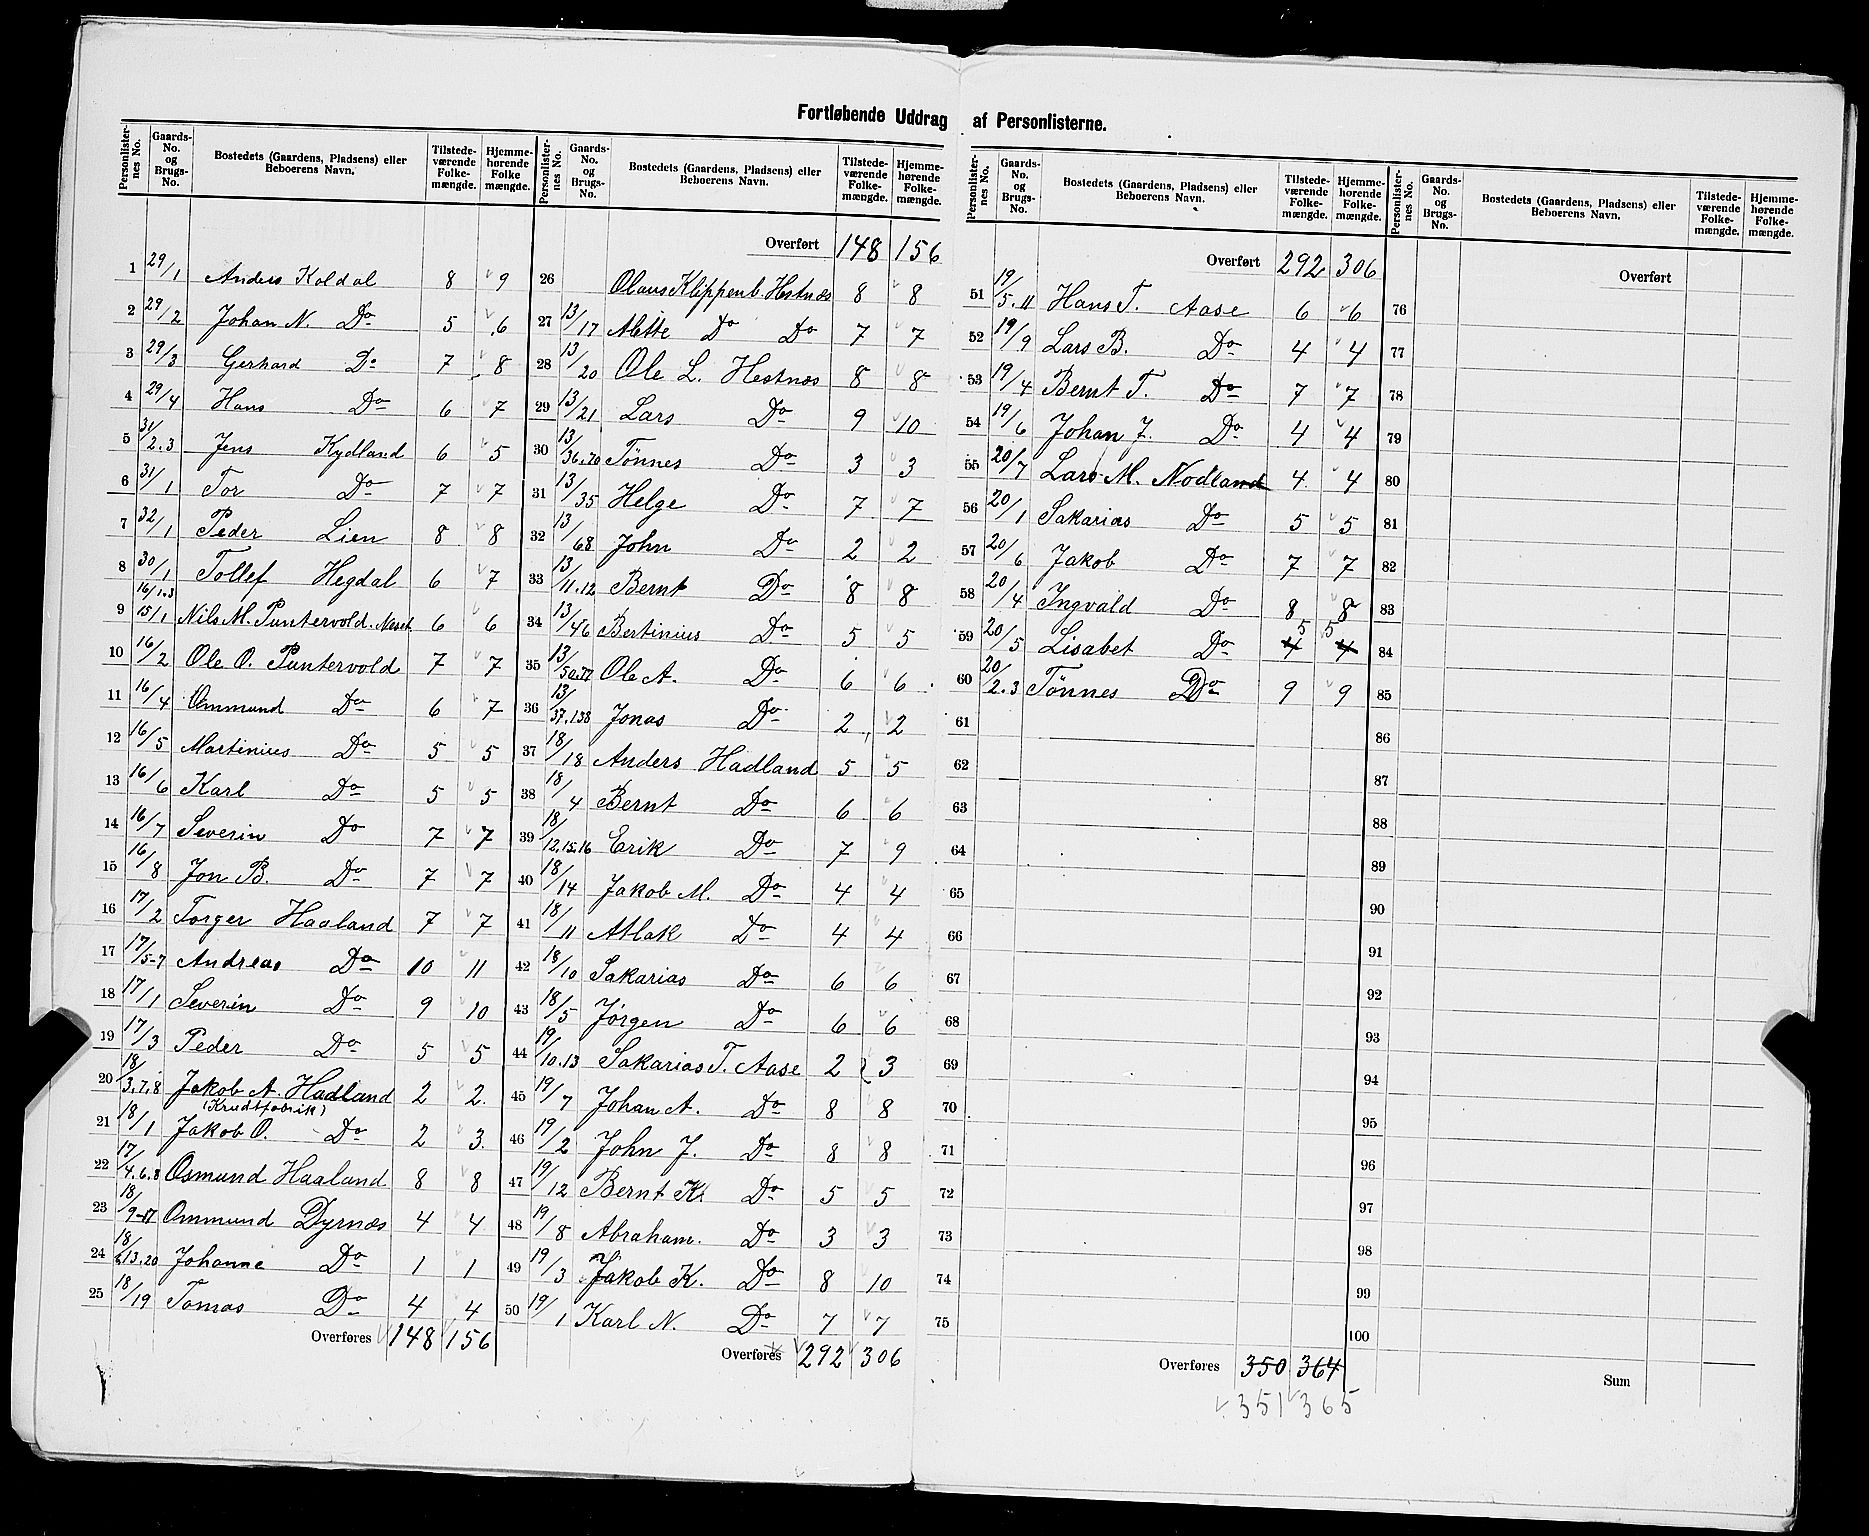 Fortløbende Uddrag af Personlisterne.
Personlister-nes No. | Gaards-No. og Brugs-No. | Bostedets (Gaardens, Pladsens) eller Beboerens Navn. | Tilstede-værende Folke-mængde. | Hjemme-hørende Folke mængde.
1 29/1 Anders Koldal 8 9
2 29/2 Johan N. Do 5 6
3 29/3 Gerhard Do 7 8
4 29/4 Hans Do 6 7
5 31/2.3 Jens Kydland 6 5
6 31/1 Tor Do 7 7
7 32/1 Peder Lien 8 8
8 30/1 Tollef Hegdal 6 7
9 16/1.3 15/1 Nils M. Puntervold. Neset 6 6
10 16/2 Ole O. Puntervold 7 7
11 16/4 Ommund Do 6 7
12 16/5 Martinius Do 5 5
13 16/6 Karl Do 5 5
14 16/7 Severin Do 7 7
15 16/8 Jon B. Do 7 7
16 17/2 Torger Haaland 7 7
17 17/5-7 Andreas Do 10 11
18 17/1 Severin Do 9 10
19 17/3 Peder Do 5 5
20 18/3.7.8 Jakob A. Hadland 2 2
(Krudtfabrik)
21 18/1 Jakob O. Do 2 3
22 17/4.6.8 Osmund Haaland 8 8
23 18/9-17 Ommund Dyrnæs 4 4
24 18/2.13.20 Johanne Do 1 1
25 18/19 Tomas Do 4 4
Overføres 148 156
Personlister-nes No. | Gaards-No. og Brugs-No. | Bostedets (Gaardens, Pladsens) eller Beboerens Navn. | Tilstede-værende Folke-mængde. | Hjemme-hørende Folke-mængde.
Overført 148 156
26 Olaus Klippenb. Hestnæs 8 8
27 13/17 Mette Do Do 7 7
28 13/20 Ole L. Hestnæs 8 8
29 13/21 Lars Do 9 10
30 13/36.70 Tønnes Do 3 3
31 13/35 Helge Do 7 7
32 13/68 John Do 2 2
33 13/11.12 Bernt Do 8 8
34 13/46 Bertinius Do 5 5
35 13/50.77 Ole A. Do 6 6
36 13/37.138 Jonas Do 2 2
37 18/18 Anders Hadland 5 5
38 18/4 Bernt Do 6 6
39 18/12.15.16 Erik Do 7 9
40 18/14 Jakob M. Do 4 4
41 18/11 Atlak Do 4 4
42 18/10 Sakarias Do 6 6
43 18/5 Jørgen Do 6 6
44 19/10.13 Sakarias T. Aase 2 3
45 19/7 Johan A. Do 8 8
46 19/2 John J. Do 8 8
47 19/12 Bernt K. Do 5 5
48 19/8 Abraham. Do 3 3
49 19/3 Jakob K. Do 8 10
50 19/1 Karl N. Do 7 7
Overføres 292 306
Personlister-nes No. | Gaards-No. og Brugs-No. | Bostedets (Gaardens, Pladsens) eller Beboerens Navn. | Tilstede-værende Folke-mængde. | Hjemme-hørende Folke-mængde.
Overført 292 306
51 19/5.11 Hans T. Aase 6 6
52 19/9 Lars B. Do 4 4
53 19/4 Bernt T. Do 7 7
54 19/6 Johan J. Do 4 4
55 20/7 Lars M. Nodland 4 4
56 20/1 Sakarias Do 5 5
57 20/6 Jakob Do 7 7
58 20/4 Ingvald Do 8 8
59 20/5 Lisabet Do 4 5 4 5
60 20/2.3 Tønnes Do 9 9
61
62
63
64
65
66
67
68
69
70
71
72
73
74
75
Overføres 350 364
351 365
Personlister-nes No. | Gaards-No. og Brugs-No. | Bostedets (Gaardens, Pladsens) eller Beboerens Navn. | Tilstede-værende Folke-mængde. | Hjemme-hørende Folke-mængde.
Overført
76
77
78
79
80
81
82
83
84
85
86
87
88
89
90
91
92
93
94
95
96
97
98
99
100
Sum